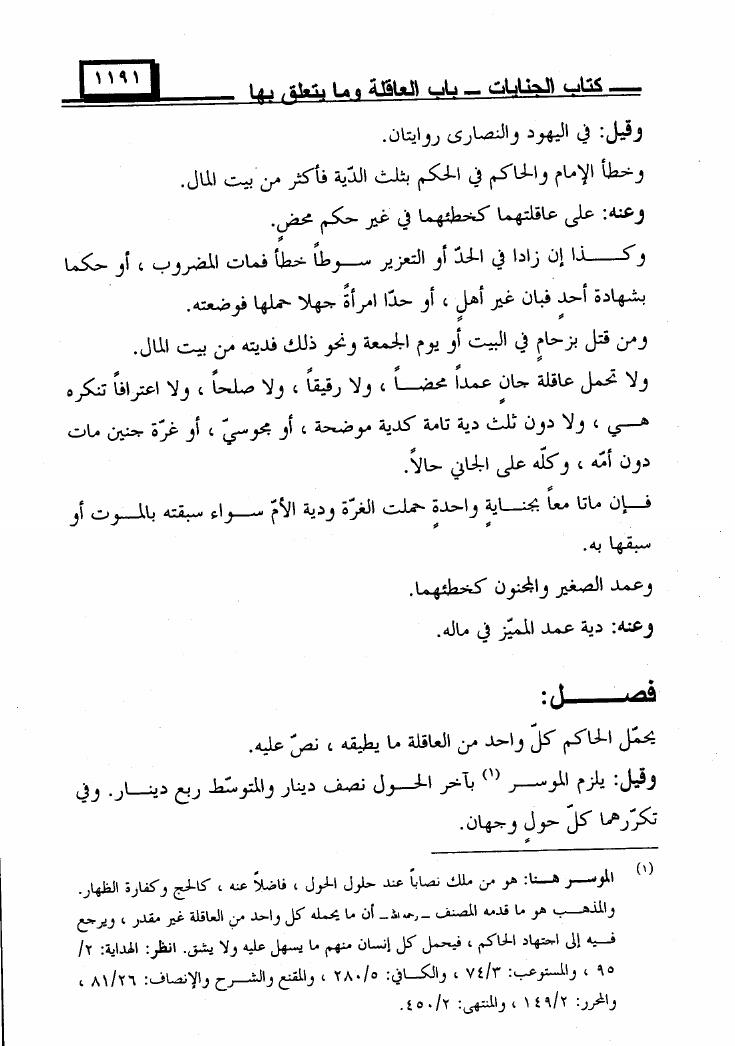 كتاب الجنايات – باب العاقلة وما يتعلق بها
١١٩١
وقيل: في اليهود والنصارى روايتان.
وخطأ الإمام والحاكم في الحكم بثلث الدّية فأكثر من بيت المال.
وعنه: على عاقلتهما كخطئهما في غير حكم محضٍ.
وكـــذا إن زادا في الحدّ أو التعزير ســوطاً خطأ فمات المضروب ، أو حكما
بشهادة أحدٍ فبان غير أهلٍ ، أو حدّا امرأةً جهلا حملها فوضعته.
ومن قتل بزحامٍ في البيت أو يوم الجمعة ونحو ذلك فديته من بيت المال.
ولا تحمل عاقلة جانٍ عمداً محضــاً ، ولا رقيقاً ، ولا صلحاً ، ولا اعترافاً تنكره
هـــي ، ولا دون ثلث دية تامة كدية موضحة ، أو مجوسيّ ، أو غرّة جنين مات
دون أمّه ، وكلّه على الجاني حالاً.
فــإن ماتا معاً بجنــايةٍ واحدةٍ حملت الغرّة ودية الأمّ ســواء سبقته بالمــوت أو
سبقها به.
وعمد الصغير والمجنون كخطئهما.
وعنه: دية عمد المميّز في ماله.
فصــــــل:
يحمّل الحاكم كلّ واحد من العاقلة ما يطيقه ، نصّ عليه.
وقيل: يلزم الموســر (١) بآخر الحــول نصف دينار والمتوسّط ربع دينــار. وفي
تكرّرهما كلّ حولٍ وجهان.
(١) الموســر هــنا: هو من ملك نصاباً عند حلول الحول ، فاضلاً عنه ، كالحج وكفارة الظهار.
والمذهــب هو ما قدمه المصنف – رحمه الله – أن ما يحمله كل واحد من العاقلة غير مقدر ، ويرجع
فــيه إلى اجتهاد الحاكم ، فيحمل كل إنسان منهم ما يسهل عليه ولا يشق. انظر: الهداية: ٢/
٩٥ ، والمستوعب: ٧٤/٣ ، والكــافي: ٢٨٠/٥ ، والمقنع والشــرح والإنصاف: ٨١/٢٦ ،
والمحرر: ١٤٩/٢ ، والمنتهى: ٤٥٠/٢.